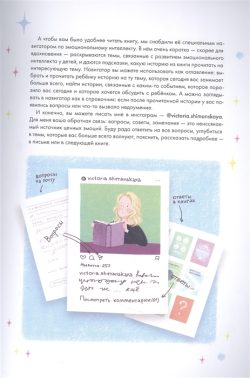 А чтобы вам было удобнее читать книгу, мы снабдили её специальным на-
вигатором по эмоциональному интеллекту. В нём очень коротко — скорее для
вдохновения — раскрываются темы, связанные с развитием эмоционального
интеллекта у детей, и даются подсказки, какую историю из книги прочитать на
интересующую тему. Навигатор вы можете использовать как оглавление: вы-
брать и прочитать ребёнку историю на ту тему, которая сегодня вас занимает
больше всего, найти истории, связанные с каким-то событием, которое пора-
зило вас сегодня и о котором хочется обсудить с ребёнком. А можно загляды-
вать в навигатор как в справочник: если после прочитанной истории у вас по-
явились вопросы или что-то вызвало недоумение.
И конечно, вы можете писать мне в инстаграм — @victoria.shimanskaya.
Для меня ваша обратная связь: вопросы, советы, замечания — это неиссякае-
мый источник ценных эмоций. Буду рада ответить на все вопросы, углубиться
в темы, которые вас больше всего волнуют, пояснить, рассказать подробнее —
в письме или в следующей книге.
вопросы
на почту
ответы
в книгах
Вопросы
victoria.shimanskaya
victoria.shimanskaya
Посмотреть комментарии